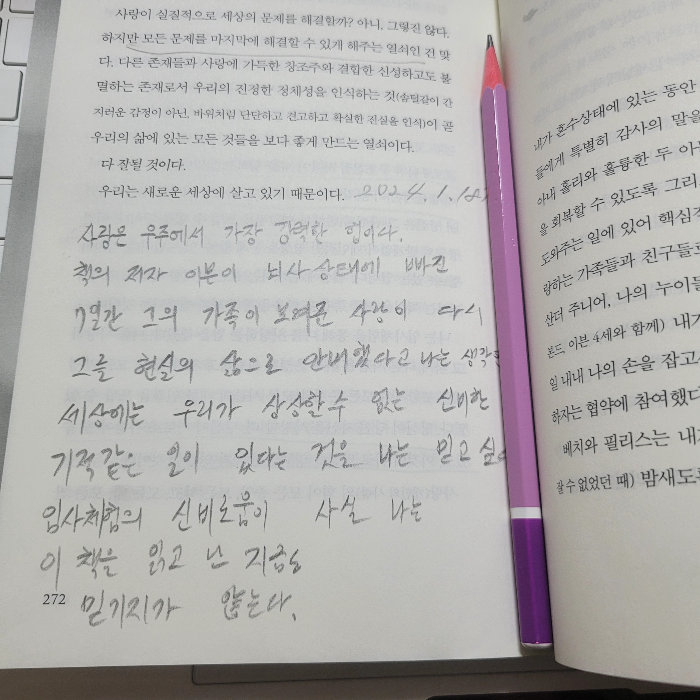 사랑이 실질적으로 세상의 문제를 해결할까? 아니, 그렇진 않다.
하지만 모든 문제를 마지막에 해결할 수 있게 해주는 열쇠인 건 맞
다. 다른 존재들과 사랑에 가득한 창조주와 결합한 신성하고도 불
멸하는 존재로서 우리의 진정한 정체성을 인식하는 것(솜털같이 간
지러운 감정이 아닌, 바위처럼 단단하고 견고하고 확실한 진실을 인식)이 곧
우리의 삶에 있는 모든 것들을 보다 좋게 만드는 열쇠이다.
다 잘될 것이다.
우리는 새로운 세상에 살고 있기 때문이다. 2024.1.18
사랑은 우주에서 가장 강력한 힘이다.
책의 저자 이븐이 뇌사 상태에 빠진
7일간 그의 가족이 보여준 사랑이 다시
그를 현실의 삶으로 안내했다고 나는 생각
세상에는 우리가 상상할 수 없는 신비한
기적같은 일이 있다는 것을 나는 믿고 싶
임사체험의 신비로움이 사실 나는
이 책을 읽고 난 지금도
믿기지가 않는다.
272
내가 혼수상태에 있는 동안
들에게 특별히 감사의 말을
아내 홀리와 훌륭한 두 아
을 회복할 수 있도록 그리
도와주는 일에 있어 핵심
랑하는 가족들과 친구들
산더 주니어, 나의 누이들
몬드 이븐 4세와 함께) 내가
일 내내 나의 손을 잡고
하자는 협약에 참여했다
베치와 필리스는 내
잘 수 없었던 때) 밤새도